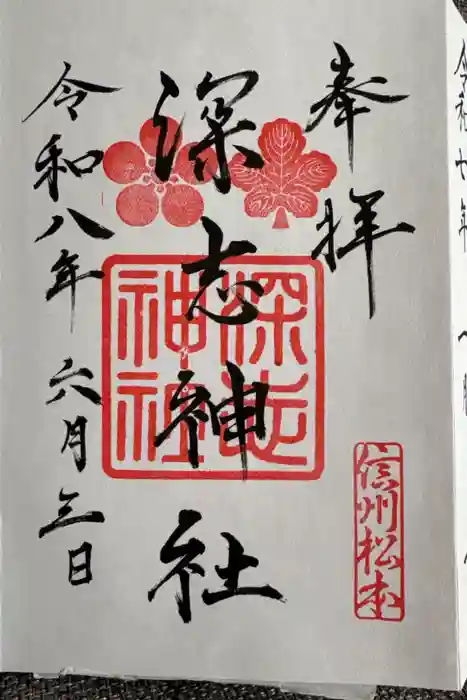 奉拝
深志神社
令和八年六月三日
深志神社
信州松本
令和七年